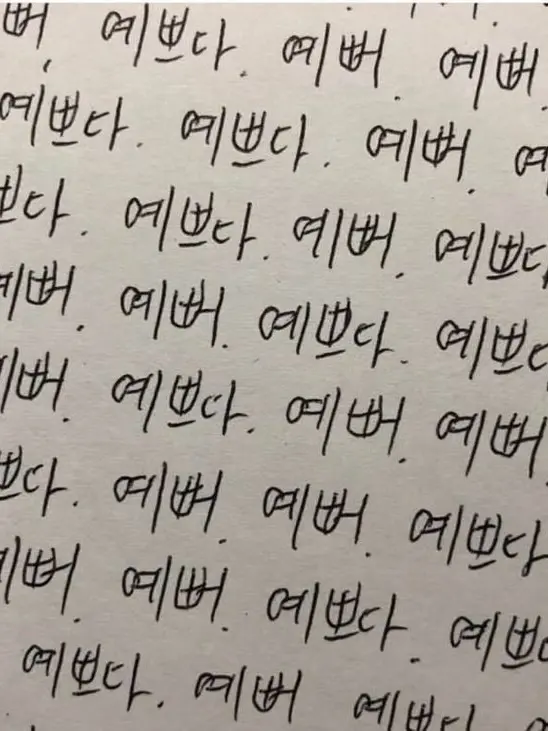 뻐. 예쁘다. 예뻐. 예뻐.
예쁘다. 예쁘다. 예뻐. 예
쁘다. 예쁘다. 예뻐. 예쁘다
예뻐. 예뻐. 예쁘다. 예쁘
뻐. 예쁘다. 예뻐. 예뻐.
쁘다. 예뻐. 예뻐. 예쁘다
예뻐. 예뻐. 예쁘다. 예쁘
예쁘다. 예뻐 예쁘다